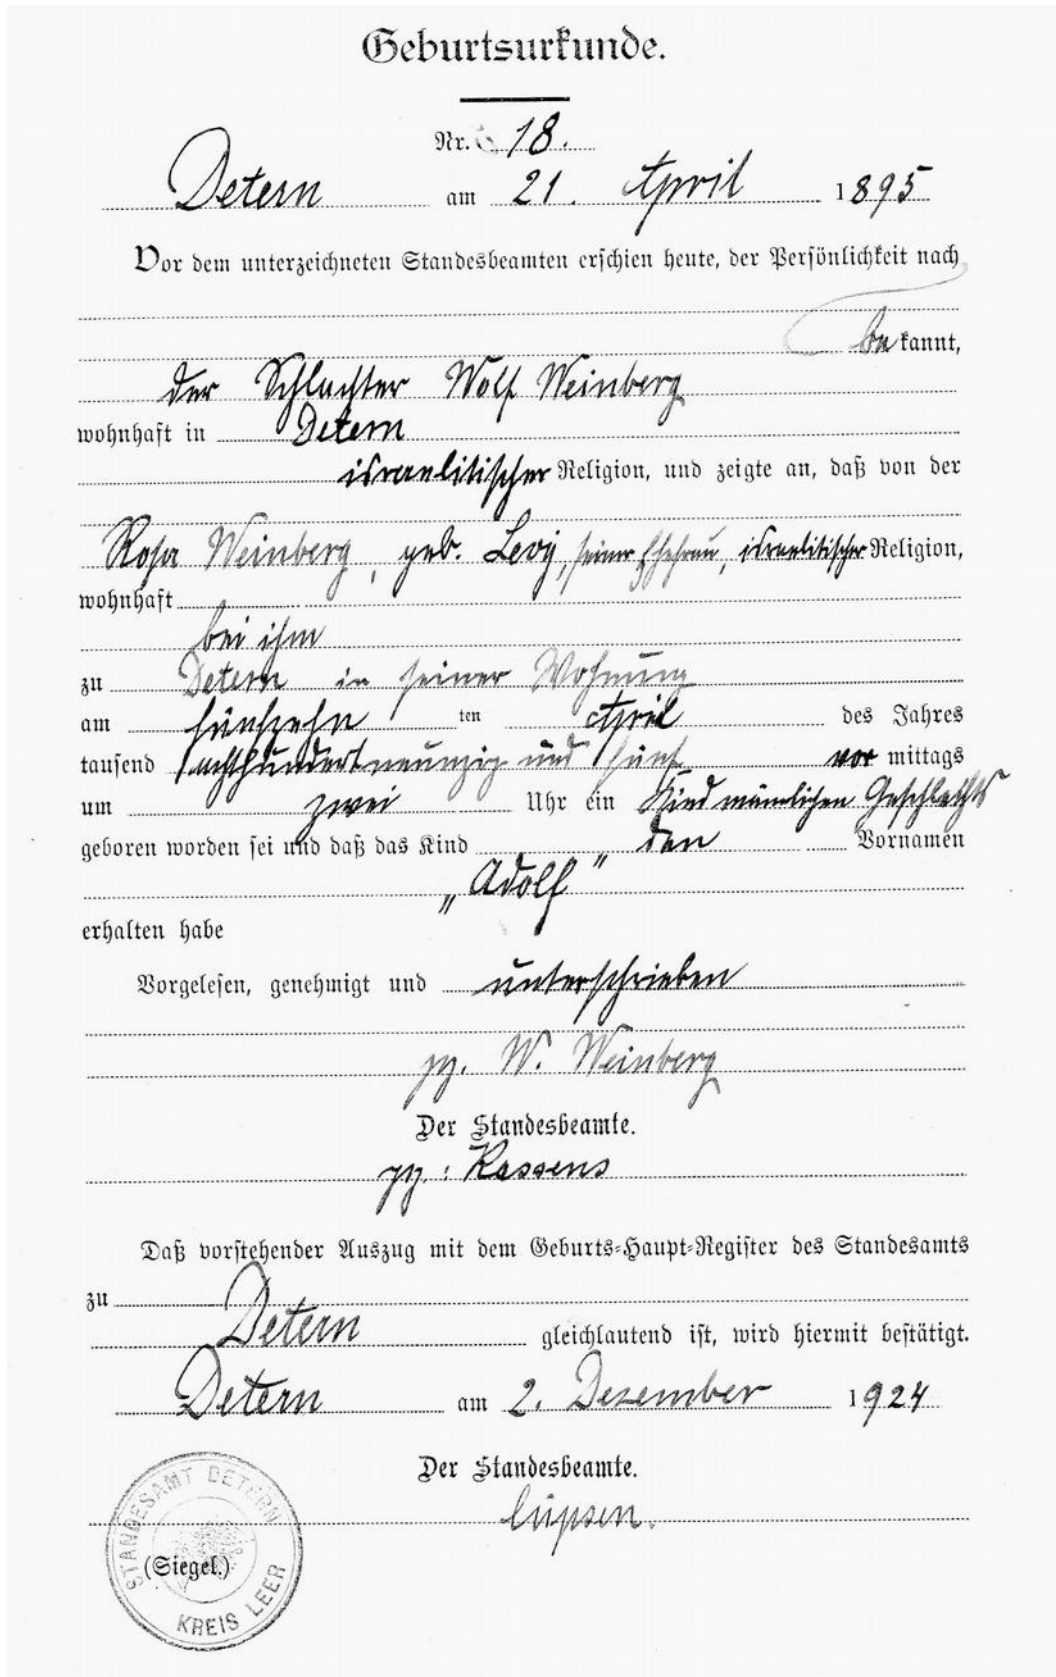 Geburtsurkunde.
Nr. 18.
Detern am 21. April 1895
Vor dem unterzeichneten Standesbeamten erschien heute, der Persönlichkeit nach
bekannt,
der Schlachter Wolf Weinberg
wohnhaft in Detern
israelitischer Religion, und zeigte an, daß von der
Rosa Weinberg, geb. Levy, seiner Ehefrau, israelitischer Religion,
wohnhaft
bei ihm
zu Detern in seiner Wohnung
am fünfzehn ten April des Jahres
tausend achthundert neunzig und fünf vor mittags
um zwei Uhr ein Kind männlichen Geschlechts
geboren worden sei und daß das Kind den Vornamen
„Adolf"
erhalten habe
Vorgelesen, genehmigt und unterschrieben
gz. W. Weinberg
Der Standesbeamte.
gz.: Kassens
Daß vorstehender Auszug mit dem Geburts-Haupt-Register des Standesamts
zu
Detern gleichlautend ist, wird hiermit bestätigt.
Detern am 2. Dezember 1924
Der Standesbeamte.
(Siegel.)
STANDESAMT DETERN
KREIS LEER